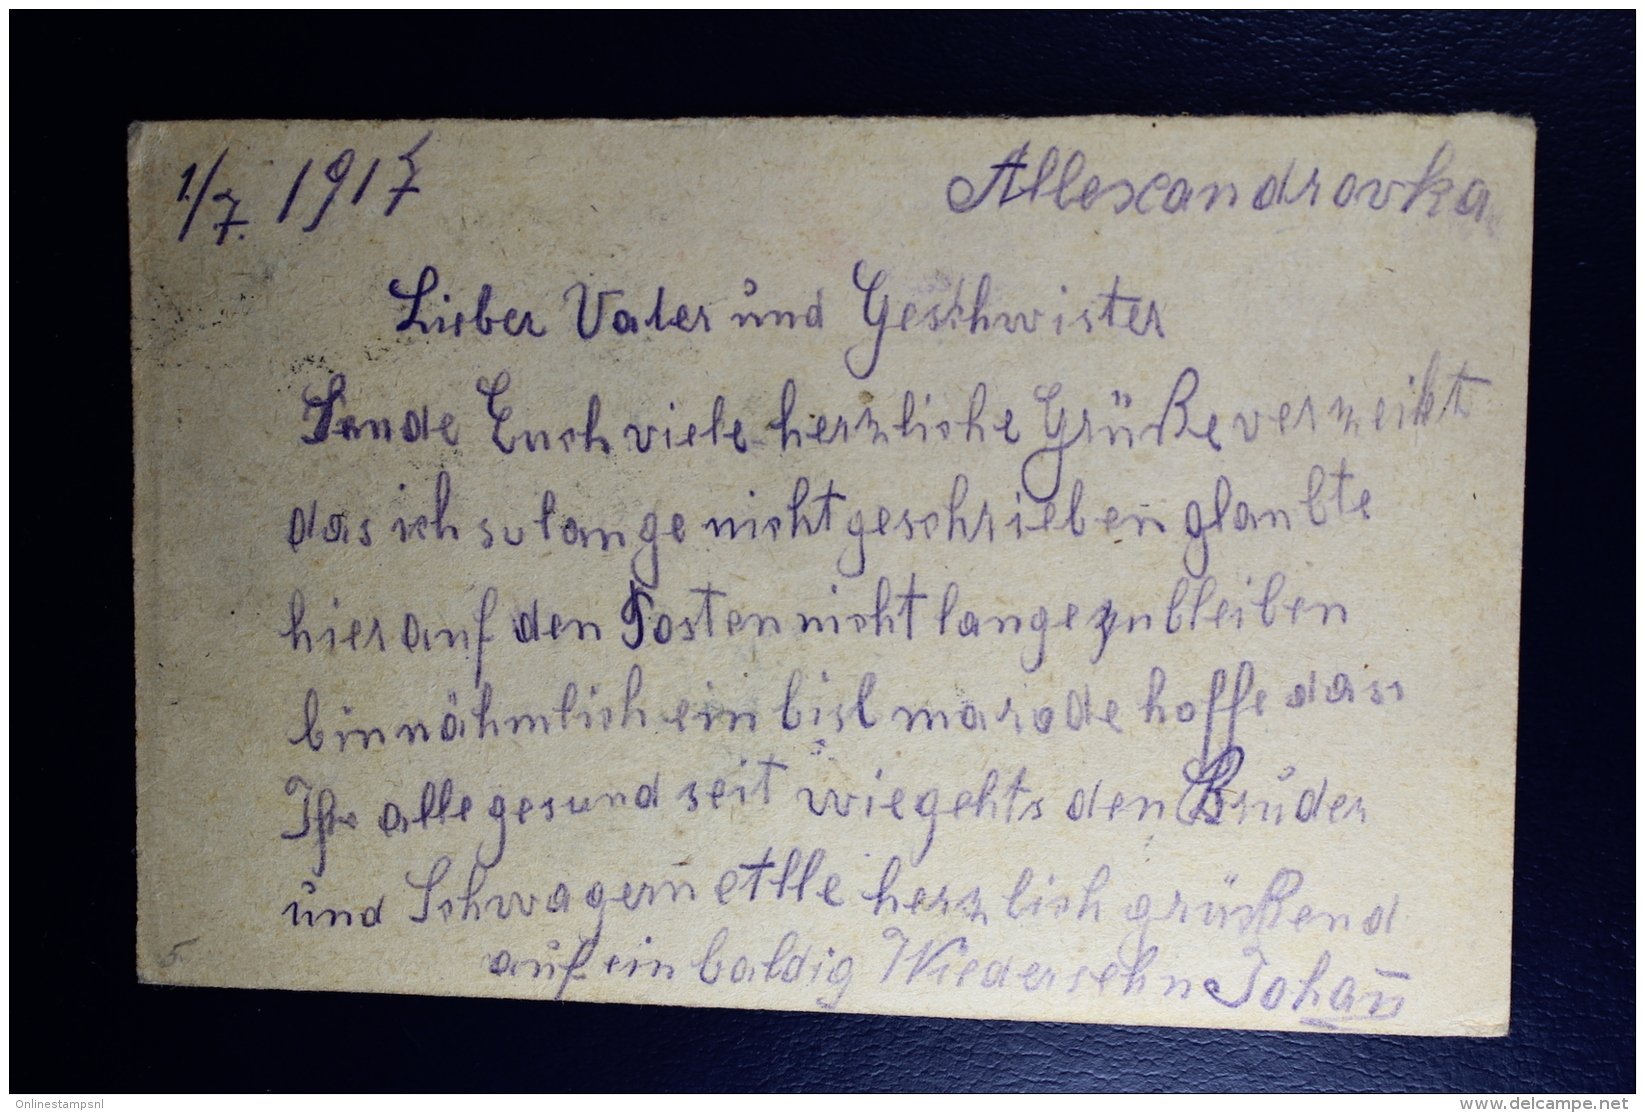 1/7. 1917 Allexandrovka
Lieber Vater und Geschwister
Sende Euch viele herzliche Grüße verzeikt
das ich so lange nicht geschrieben glaubte
hier auf den Posten nicht lange zu bleiben
bin nähmlich ein bisl marode hoffe dass
Ihr alle gesund seit wie gehts den Bruder
und Schwagern herzlich grüßend
auf ein baldig Wiedersehn Johan̄
5
Onlinestampsnl
delcampe.net